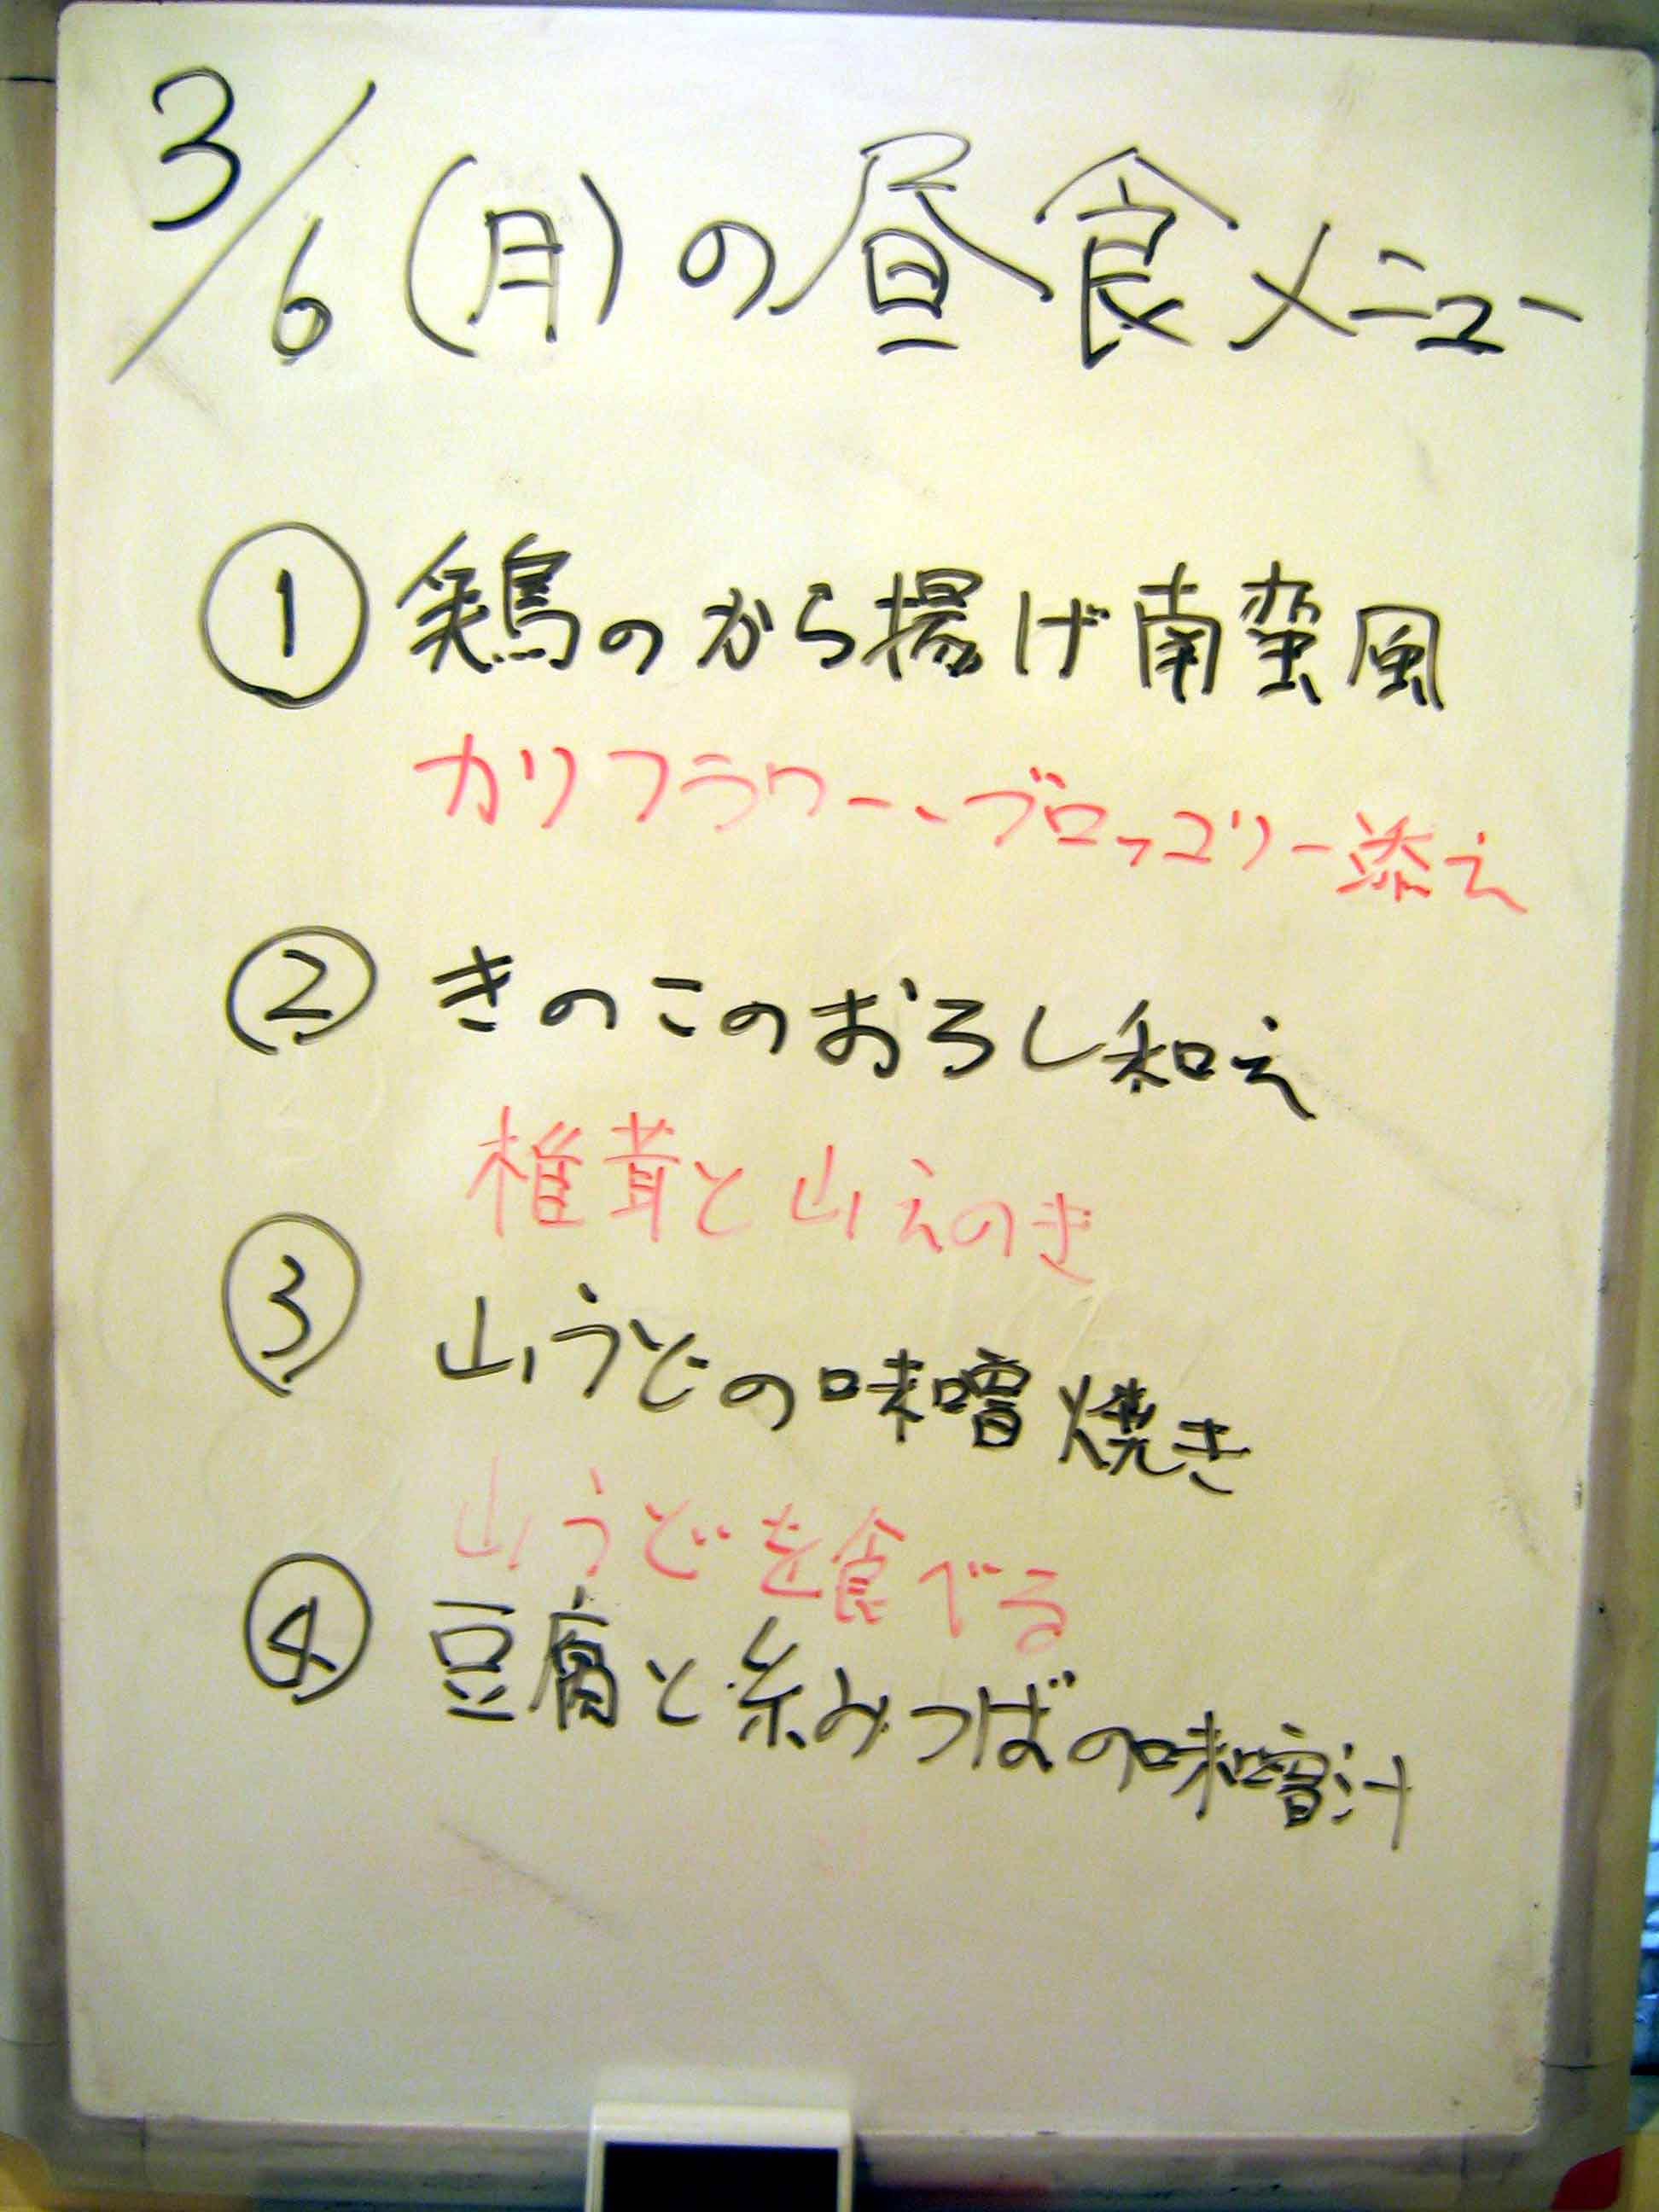 3/6(月)の昼食メニュー
① 鶏のから揚げ南蛮風
カリフラワー、ブロッコリー添え
② きのこのおろし和え
椎茸と山えのき
③ 山うどの味噌焼き
山うどを食べる
④ 豆腐と糸みつばの味噌汁